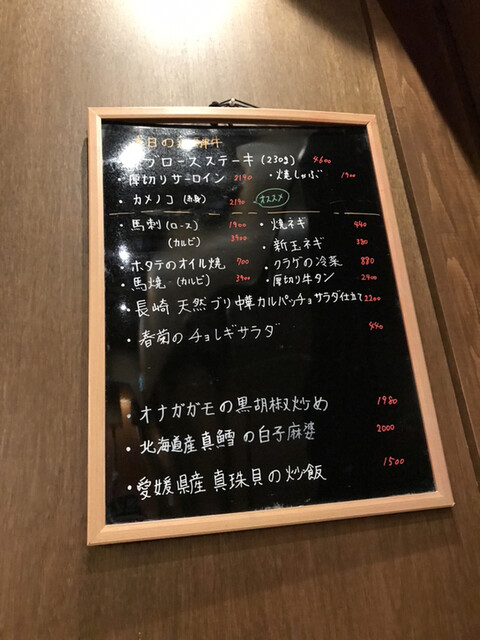 本日の飛騨牛
リブロースステーキ (230g) 4600
・厚切りサーロイン 2190 ・焼しゃぶ 1900
・カメノコ (赤身) 2190 オススメ
・馬刺 (ロース) 1900 ・焼ネギ 440
(カルビ) 3900 ・新玉ネギ 380
・ホタテのオイル焼 700 ・クラゲの冷菜 880
・馬焼 (カルビ) 3900 ・厚切り牛タン 2400
・長崎 天然ブリ 中華カルパッチョサラダ仕立て 2200
・春菊のチョレギサラダ 440
・オナガガモの黒胡椒炒め 1980
・北海道産真鱈の白子麻婆 2000
・愛媛県産 真珠貝の炒飯 1500